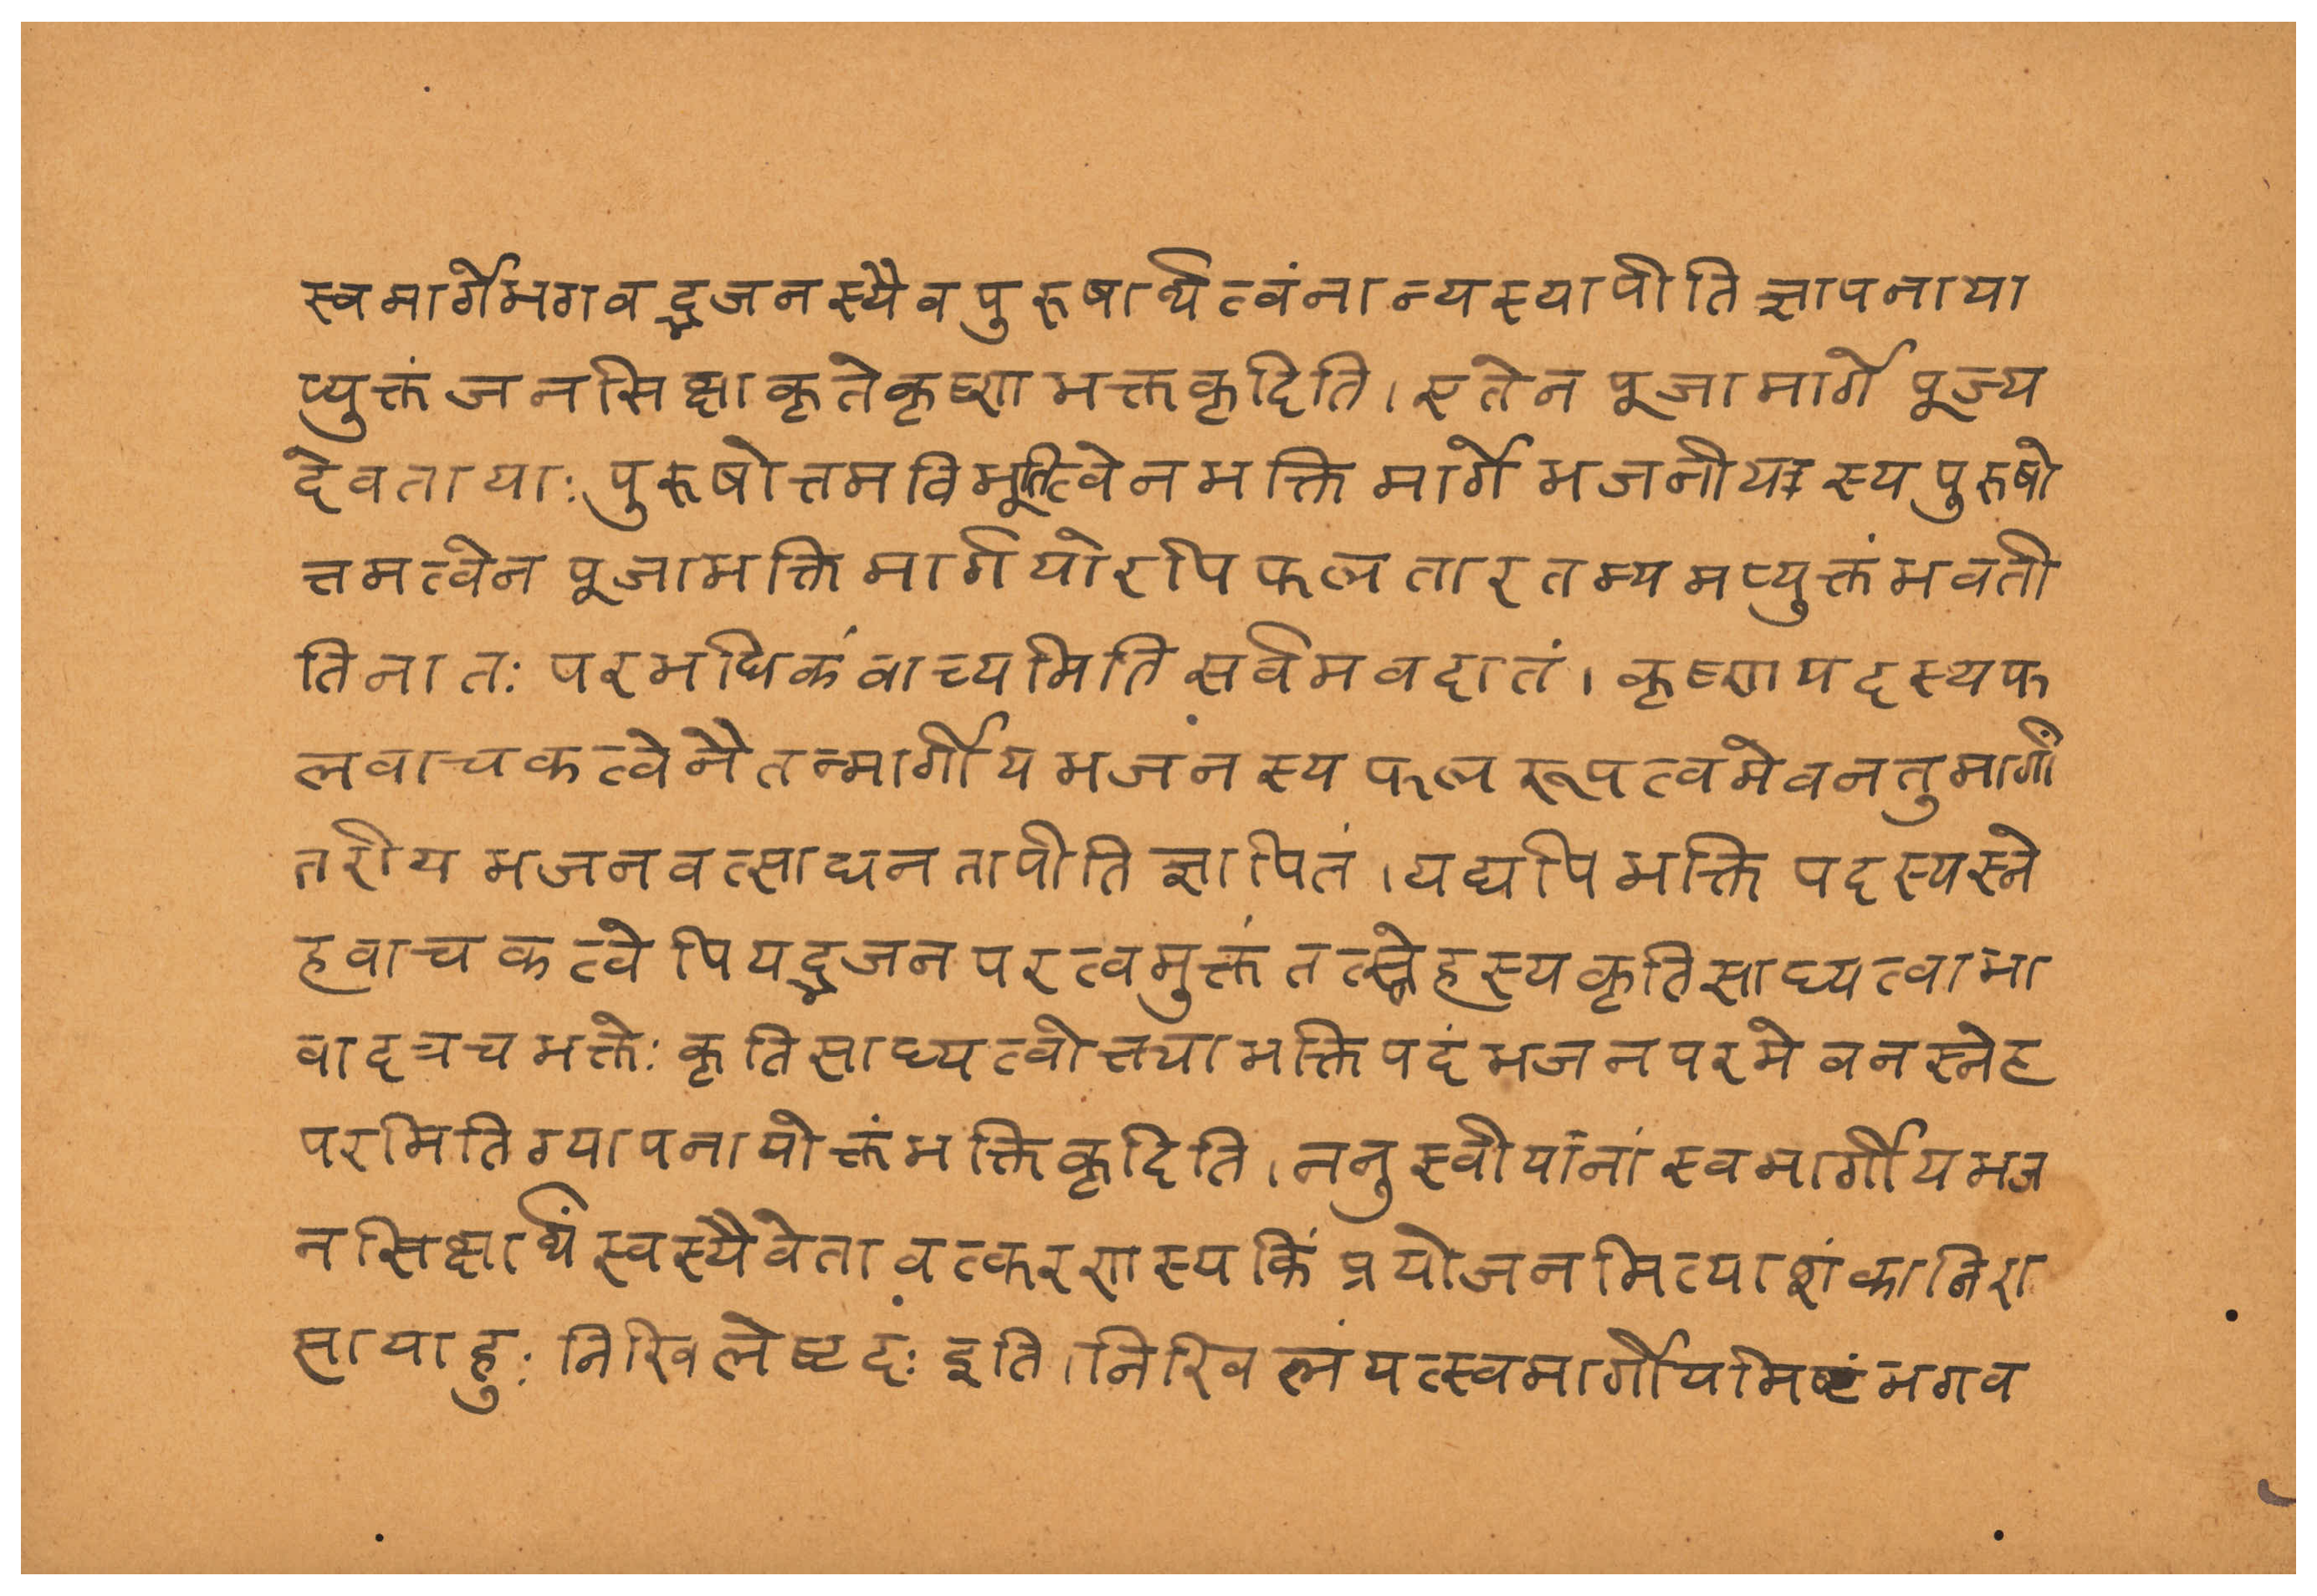 स्वमार्गेभगवद्भजनस्यैवपुरुषार्थत्वंनान्यस्यापीतिज्ञापनाया
प्युक्तंजनसिक्षाकृतेकृष्णभक्तकृदिति।एतेन पूजामार्गे पूज्य
देवतायाः पुरुषोत्तमविभूतित्वेनभक्तिमार्गेभजनीयस्यपुरुषो
त्तमत्वेन पूजाभक्तिमार्गयोरपिफलतारतम्यमप्युक्तंभवती
तिनातः परमधिकंवाच्यमितिसर्वमवदातं। कृष्णपदस्यफ
लवाचकत्वेनैतन्मार्गीयभजनस्यफलरूपत्वमेवनतुमार्गां
तरीयभजनवत्साधनतापीतिज्ञापितं।यद्यपिभक्तिपदस्यस्ने
हवाचकत्वेपियद्भजनपरत्वमुक्तंतत्स्नेहस्यकृतिसाध्यत्वाभा
वादत्रचभक्तेः कृतिसाध्यत्वोत्तयाभक्तिपदंभजनपरमेवनस्नेह
परमितिग्यापनायोक्तंभक्तिकृदिति।ननुस्वीयांनांस्वमार्गीयभज
नसिक्षार्थंस्वस्यैवेतावत्करणस्यकिंप्रयोजनमित्याशंकानिरा
सायाहुः निखिलेष्टदः इति।निखिलंयत्स्वमार्गीयमिष्टंभगव